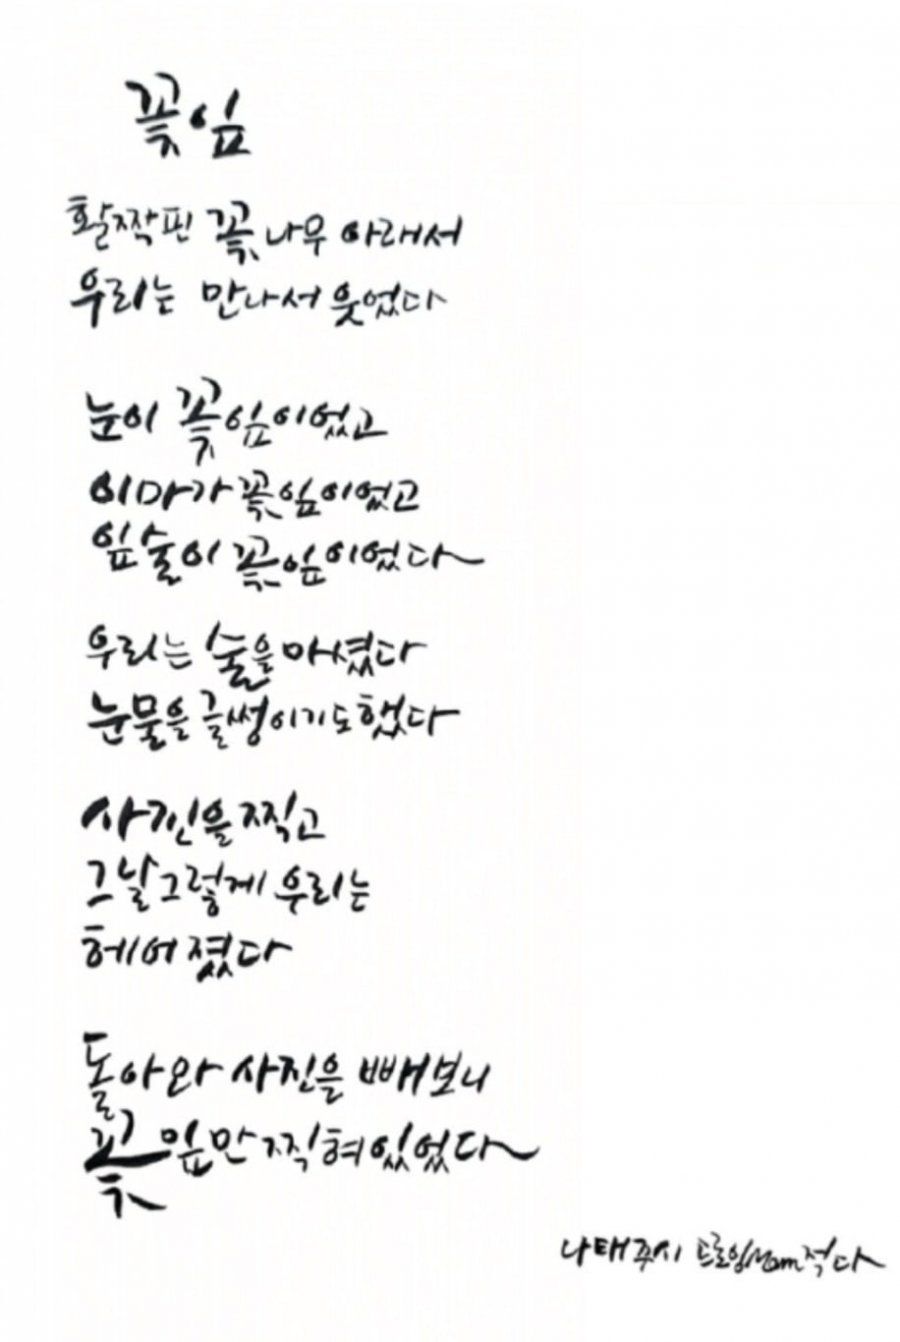 꽃잎
활짝 핀 꽃나무 아래서
우리는 만나서 웃었다
눈이 꽃잎이었고
이마가 꽃잎이었고
입술이 꽃잎이었다
우리는 술을 마셨다
눈물을 글썽이기도 했다
사진을 찍고
그날 그렇게 우리는
헤어졌다
돌아와 사진을 빼보니
꽃잎만 찍혀 있었다
나태주 시 적다